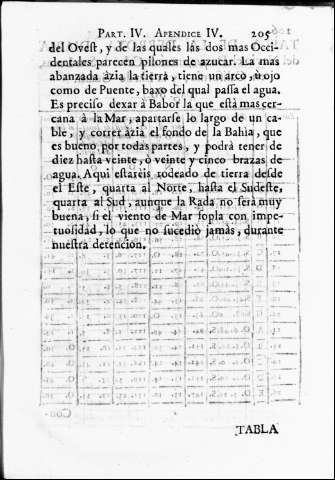 PART. IV. APENDICE IV. 205
del Oveſt, y de las quales las dos mas Occi-
dentales parecen pilones de azucar. La mas
abanzada àzia la tierra, tiene un arco, ù ojo
como de Puente, baxo del qual paſſa el agua.
Es preciſo dexar à Babor la que eſtà mas cer-
cana à la Mar, apartarſe lo largo de un ca-
ble, y correr àzia el fondo de la Bahia, que
es bueno por todas partes, y podrà tener de
diez haſta veinte, ò veinte y cinco brazas de
agua. Aqui eſtarèis rodeado de tierra deſde
el Eſte, quarta al Norte, haſta el Sudeſte,
quarta al Sud, aunque la Rada no ſerà muy
buena, ſi el viento de Mar ſopla con impe-
tuoſidad, lo que no ſucediò jamàs, durante
nueſtra detencion.
TABLA